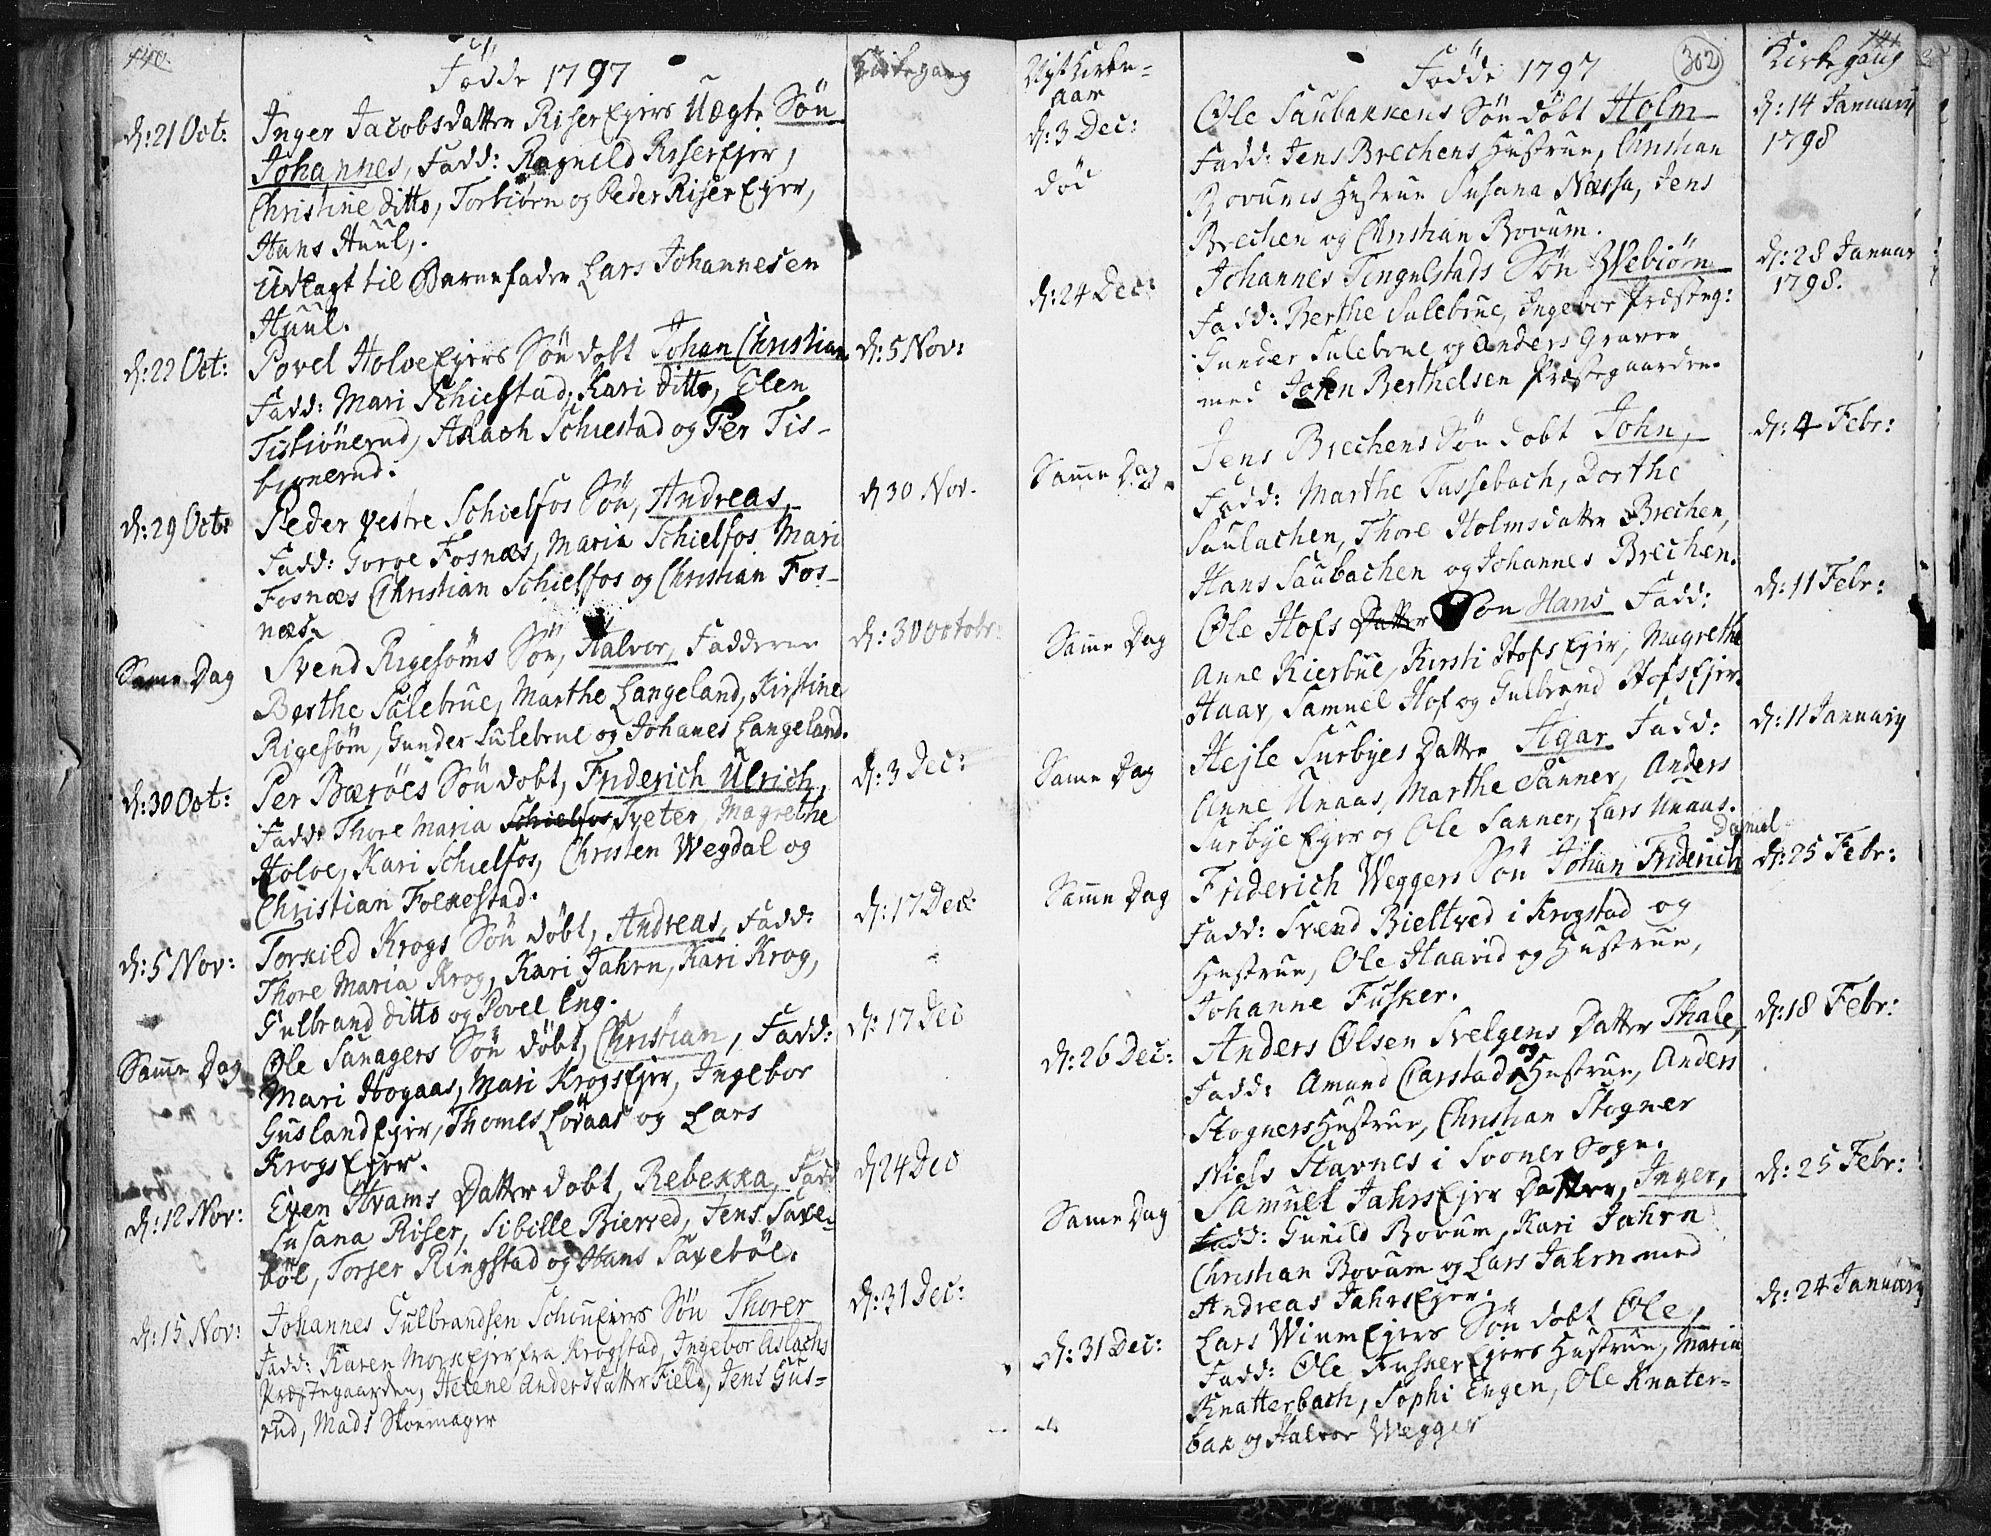 140.
Fødde 1797
Kirkegang
d: 21 Oct:
Inger Jacobsdatter Riser Ejers Uægte Søn
Johannes, Fadd: Ragnild Riserejer,
Christine ditto, Torbiørn og Peder Riser Ejer,
Hans Huul,.
Udlagt til Barnefader Lars Johannesen
Huul.
d: 22 Oct:
Povel Holve Ejers Søn dobt Johan Christian
d: 5 Nov:
Fadd: Mari Schiestad, Kari ditto, Elen
Tisbiönerud, Aslach Schiestad og Per Tis-
bionerud.
d: 29 Oct:
Peder vestre Schielfos Søn, Andreas
d 30 Nov.
Fadd: Goroe Fosnæs, Maria Schielfos Mari
Fosnæs Christian Schielfos og Christian Fos-
næs.
Same Dag
Svend Rigesøms Søn, Halvor, Fadderne
d: 30 octobr:
Berthe Sulebrue, Marthe Langeland, Kirstine
Rigesøm, Gunder Sulebrue og Johanes Langeland.
d: 30 Oct:
Per Bærøes Søn dobt, Friderich Ulrich,
d: 3 Dec:
Fadd: Thore Maria Schielfos, Tveter, Magrethe
Holve, Kari Schielfos, Christen Wegdal og
Christian Folkestad.
d: 5 Nov:
Torkild Krogs Søn døbt, Andreas, Fadd:
d: 17 Dec:
Thore Maria Krog, Kari Jahrn, Kari Krog,
Gulbrand ditto og Povel Eng.
Same Dag
Ole Sanagers Søn døbt, Christian, Fadd:
d: 17 Dec
Mari Hogaas, Mari Krogs Ejer, Ingebor
Gusland Ejer, Thomes Lövaas og Lars
Krogs Ejer.
d: 12 Nov:
Even Hvams Datter dobt, Rebekka, Fadd
d 24 Dec
Susana Riser, Sibille Bierred, Jens Saxe-
böl, Torger Ringstad og Hans Saxeböl.
d: 15 Nov:
Johannes Gulbrandsen Schou Ejers Søn Thorer
d: 31 Dec:
Fadd: Karen Mork Ejer fra Krogstad, Ingebor Aslachs
Præstegaarden, Helene Andersdatter Field, Jens Gus-
rud, Mads Skoemager
141
302
Nyt Kirke-
aar
Fødde 1797
Kirkegang
d: 3 Dec:
död
Ole Saubakkens Søn døbt Holm
d: 14 January
1798
Fadd: Jens Brechens Hustrue, Christian
Bovums Hustrue Susana Næssa, Jens
Brechen og Christian Bovum.
d: 24 Dec:
Johannes Tingulstads Søn Webiørn
d: 28 Januar
1798.
Fadd: Berthe Sulebrue, Ingebor Præsteg:
Gunder Sulebrue og Anders Graver
med John Berthelsen Præstegaarden.
Same Dag
Jens Brechens Søn dobt John,
d: 4 Febr:
Fadd: Marthe Tussebach, Dorthe
Saulachen, Thore Holmsdatter Brechen,
Hans Saubachen og Johannes Brechen.
Same Dag
Ole Hofs Datter Søn Hans Fadd:
d: 11 Febr:
Anne Kierbue, Kirsti Hofs Ejer, Magrethe
Haav, Samuel Hof og Gulbrand Hofs Ejer.
Same Dag
Hejle Surbyes Datter Agar Fadd:
d: 11 January
Anne Unaas, Marthe Sanner, Anders
Surbye Ejer og Ole Sanner, Lars Unaas.
Daniel
Same Dag
Friderich Weggers Søn Johan Friderich
d: 25 Febr:
Fadd: Svend Bieltved i Krogstad og
Hustrue, Ole Haavid og Hustrue,
Johanne Fusker.
d: 26 Dec:
Anders Olsen Svelgens Datter Thale,
d: 18 Febr:
Fadd: Amund Carstad og Hustrue, Anders
Stogners Hustrue, Christian Stogner
Niels Stavnes i Sooner Sogn.
Same Dag
Samuel Jahrs Ejer Datter, Inger,
d: 25 Febr:
Fadd: Gunild Bovum, Kari Jahrn
Christian Bovum og Lars Jahrn med
Andreas Jahrs Ejer.
d: 31 Dec:
Lars Winm Ejers Søn dobt Ole,
d: 24 January
Fadd: Ole Fusker Ejers Hustrue, Maria
Knatterbach, Sophi Engen, Ole Knater-
bak og Halvor Wegger